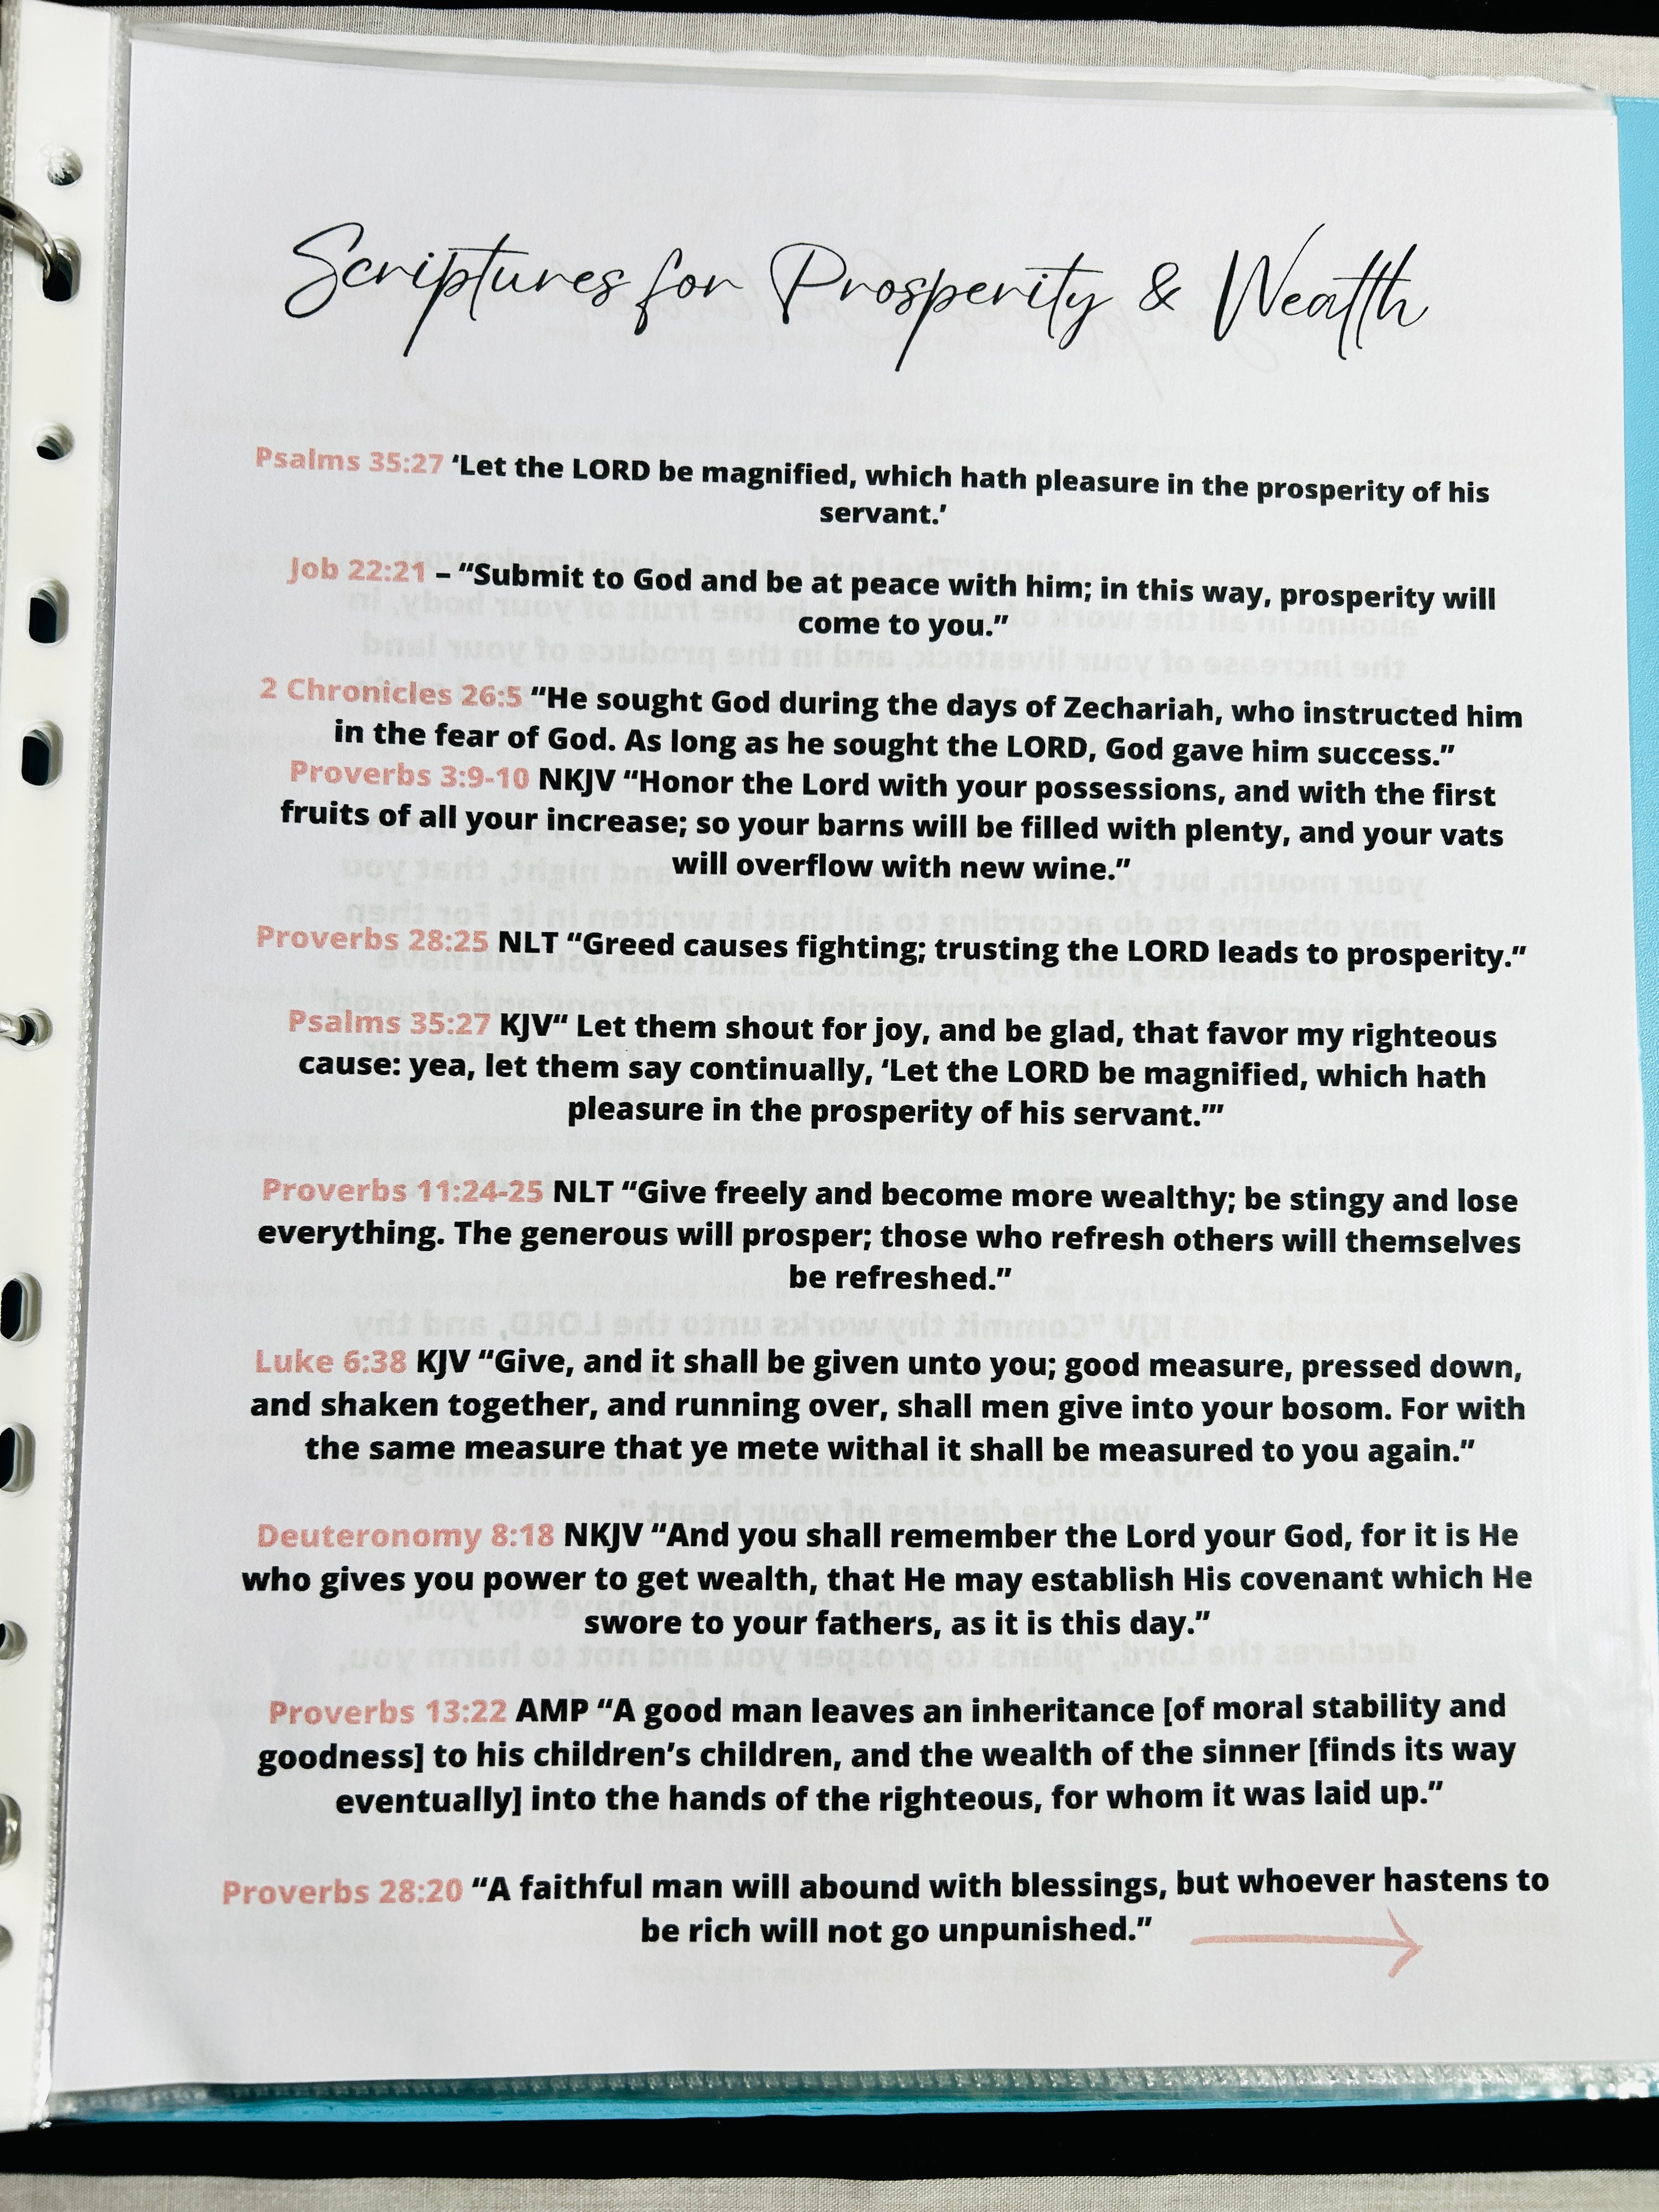 Scriptures for Prosperity & Wealth
Psalms 35:27 ‘Let the LORD be magnified, which hath pleasure in the prosperity of his
servant.’
Job 22:21 – “Submit to God and be at peace with him; in this way, prosperity will
come to you.”
2 Chronicles 26:5 “He sought God during the days of Zechariah, who instructed him
in the fear of God. As long as he sought the LORD, God gave him success.”
Proverbs 3:9-10 NKJV “Honor the Lord with your possessions, and with the first
fruits of all your increase; so your barns will be filled with plenty, and your vats
will overflow with new wine.”
Proverbs 28:25 NLT “Greed causes fighting; trusting the LORD leads to prosperity.”
Psalms 35:27 KJV“ Let them shout for joy, and be glad, that favor my righteous
cause: yea, let them say continually, ‘Let the LORD be magnified, which hath
pleasure in the prosperity of his servant.’”
Proverbs 11:24-25 NLT “Give freely and become more wealthy; be stingy and lose
everything. The generous will prosper; those who refresh others will themselves
be refreshed.”
Luke 6:38 KJV “Give, and it shall be given unto you; good measure, pressed down,
and shaken together, and running over, shall men give into your bosom. For with
the same measure that ye mete withal it shall be measured to you again.”
Deuteronomy 8:18 NKJV “And you shall remember the Lord your God, for it is He
who gives you power to get wealth, that He may establish His covenant which He
swore to your fathers, as it is this day.”
Proverbs 13:22 AMP “A good man leaves an inheritance [of moral stability and
goodness] to his children’s children, and the wealth of the sinner [finds its way
eventually] into the hands of the righteous, for whom it was laid up.”
Proverbs 28:20 “A faithful man will abound with blessings, but whoever hastens to
be rich will not go unpunished.”